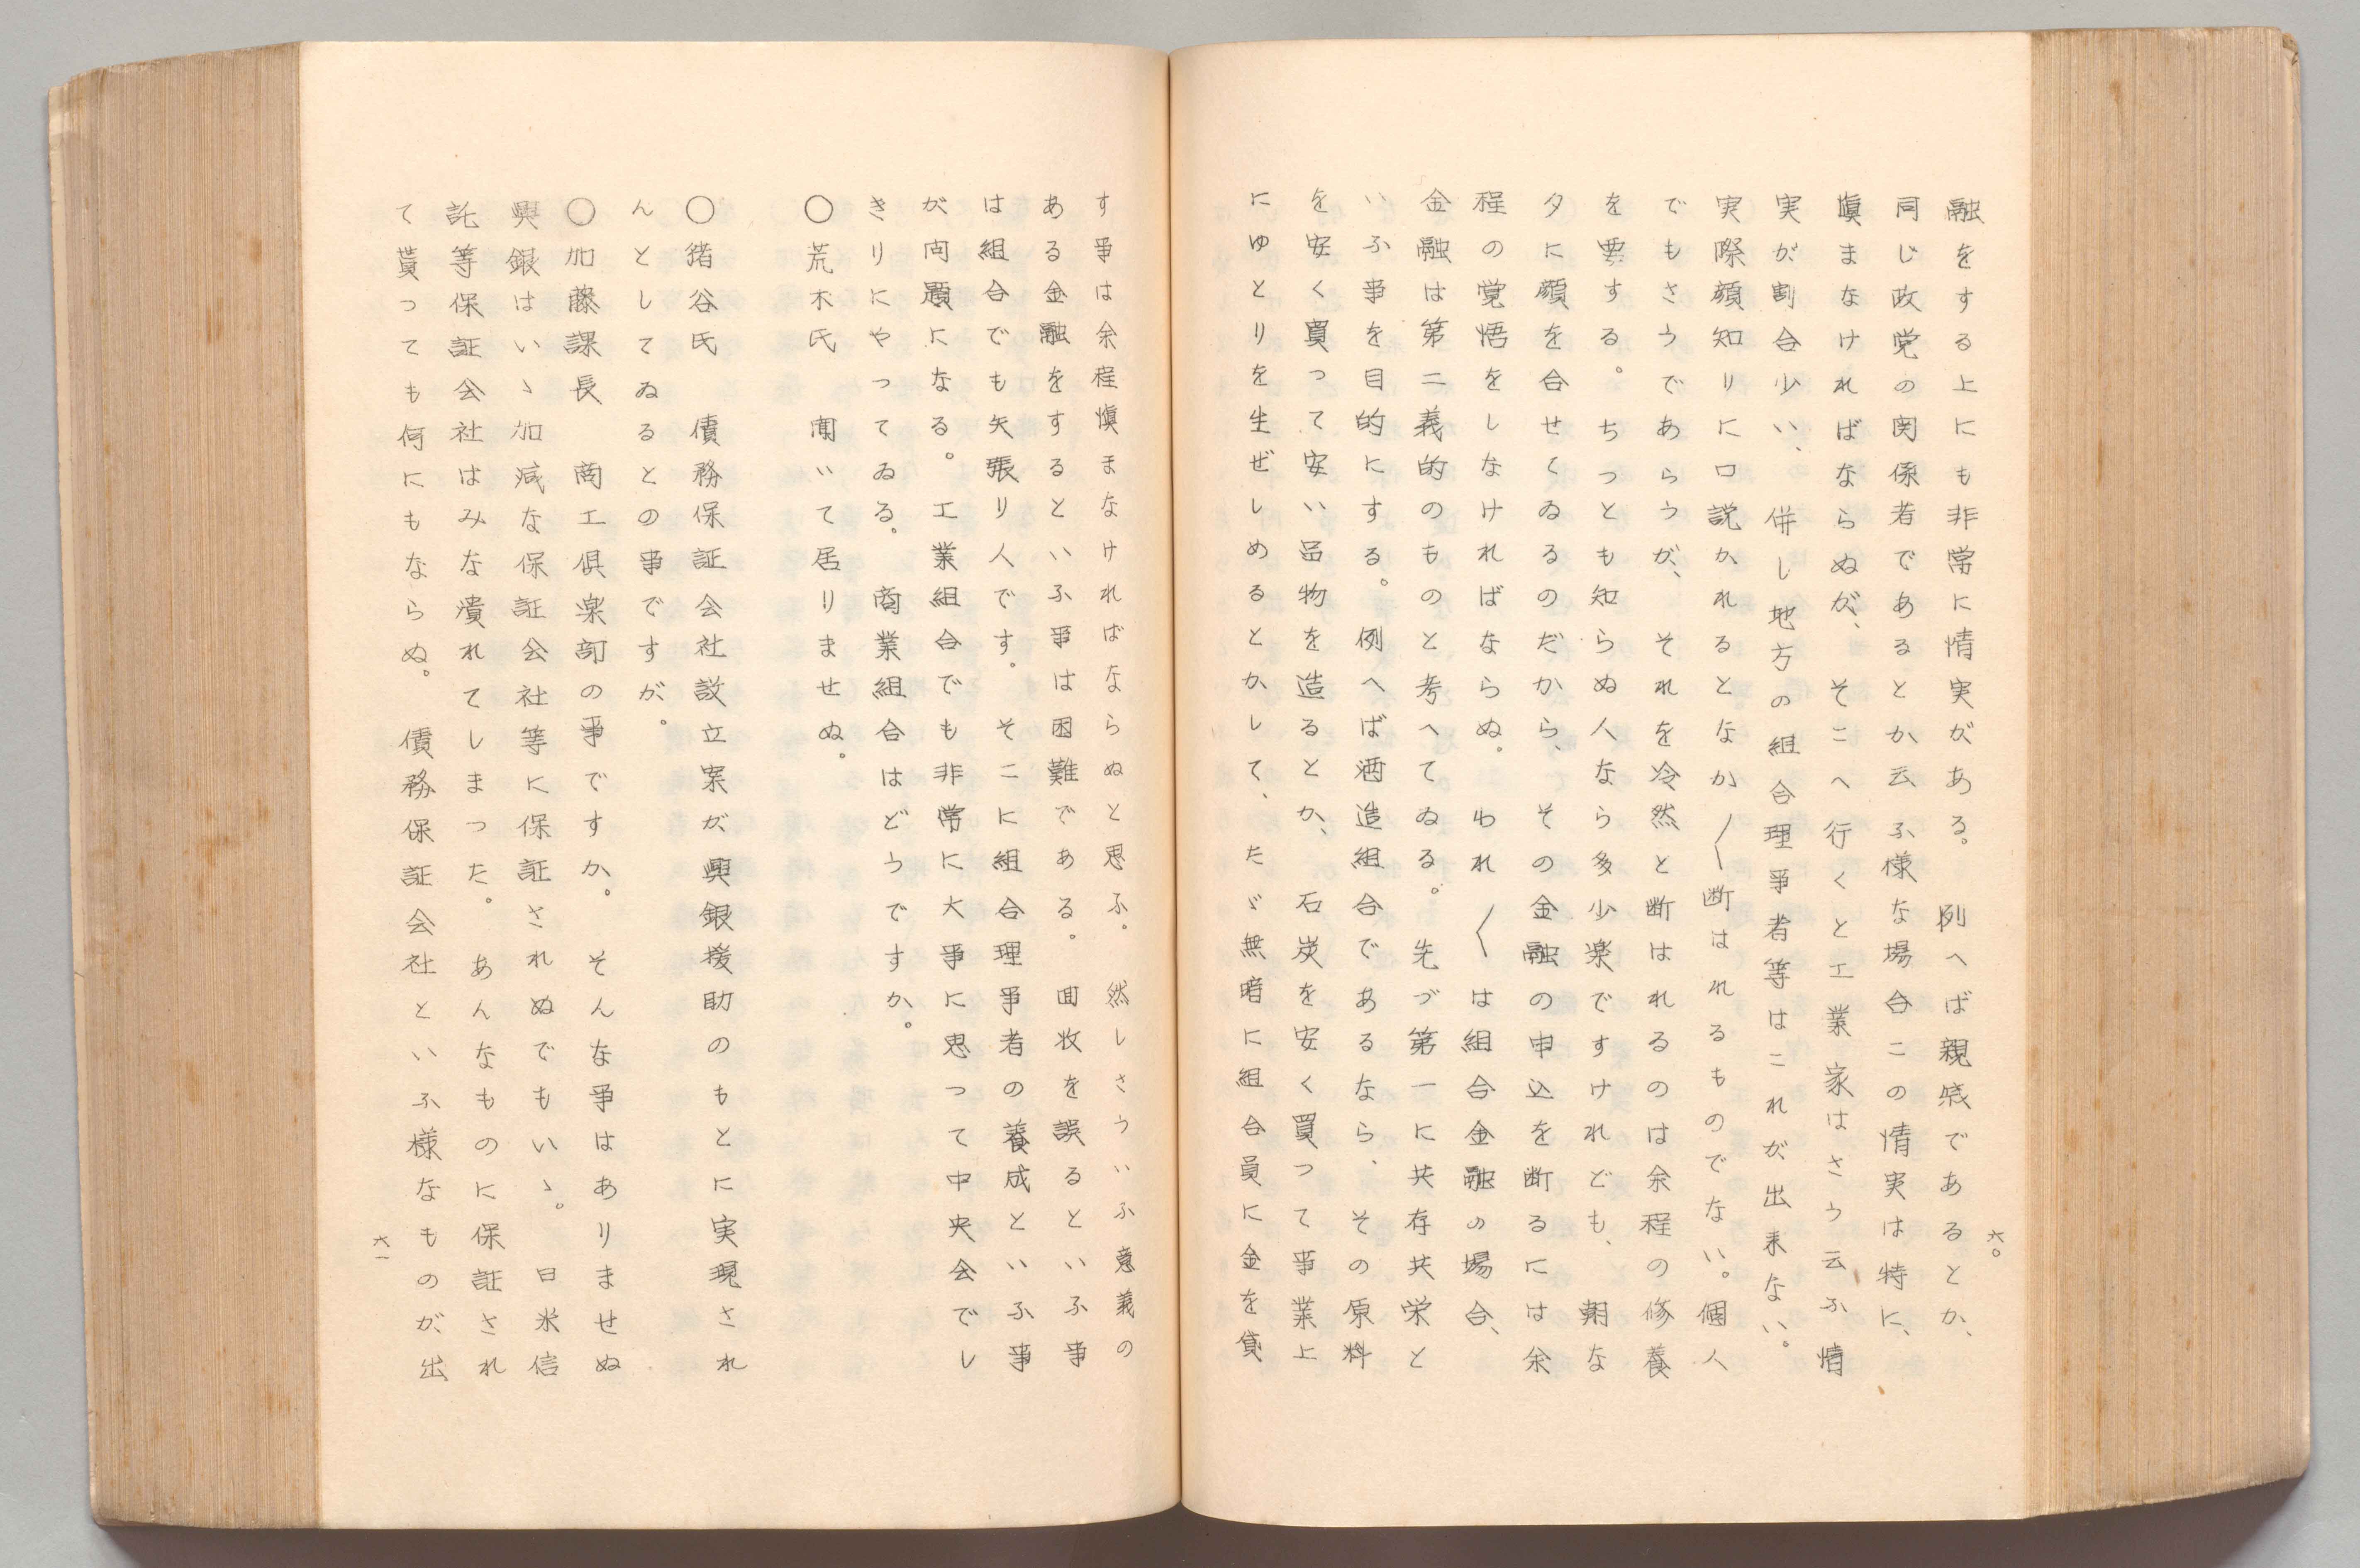 融をする上にも非常に情実がある。例へば親戚であるとか、
同じ政党の関係者であるとか云ふ様な場合この情実は特に、
慎まなければならぬが、そこへ行くと工業家はさう云ふ情
実が割合少い、併し地方の組合理事者等はこれが出来ない。
実際顔知りに口説かれるとなか〳〵断はれるものでない。個人
でもさうであらうが、それを冷然と断はれるのは余程の修養
を要する。ちつとも知らぬ人なら多少楽ですけれども、朝な
夕に顔を合せくゐるのだから、その金融の申込を断るには余
程の覚悟をしなければならぬ。われ〳〵は組合金融の場合、
金融は第二義的のものと考へてゐる。先づ第一に共存共栄と
いふ事を目的にする。例へば酒造組合であるなら、その原料
を安く買って安い品物を造るとか、石炭を安く買つて事業上
にゆとりを生ぜしめるとかして、たゞ無暗に組合員に金を貸
六〇
す事は余程慎まなければならぬと思ふ。然しさういふ意義の
ある金融をするといふ事は困難である。回收を誤るといふ事
は組合でも矢張り人です。そこに組合理事者の養成といふ事
が問題になる。工業組合でも非常に大事に思って中央会でし
きりにやってゐる。商業組合はどうですか。
〇荒木氏　聞いて居りませぬ。
〇猪谷氏　債務保証会社設立案が興銀援助のもとに実現され
んとしてゐるとの事ですが。
〇加藤課長　商工倶楽部の事ですか。そんな事はありませぬ
興銀はいゝ加減な保証会社等に保証されぬでもいゝ。日米信
託等保証会社はみな潰れてしまった。あんなものに保証され
て貰っても何にもならぬ。債務保証会社といふ様なものが、出
六一